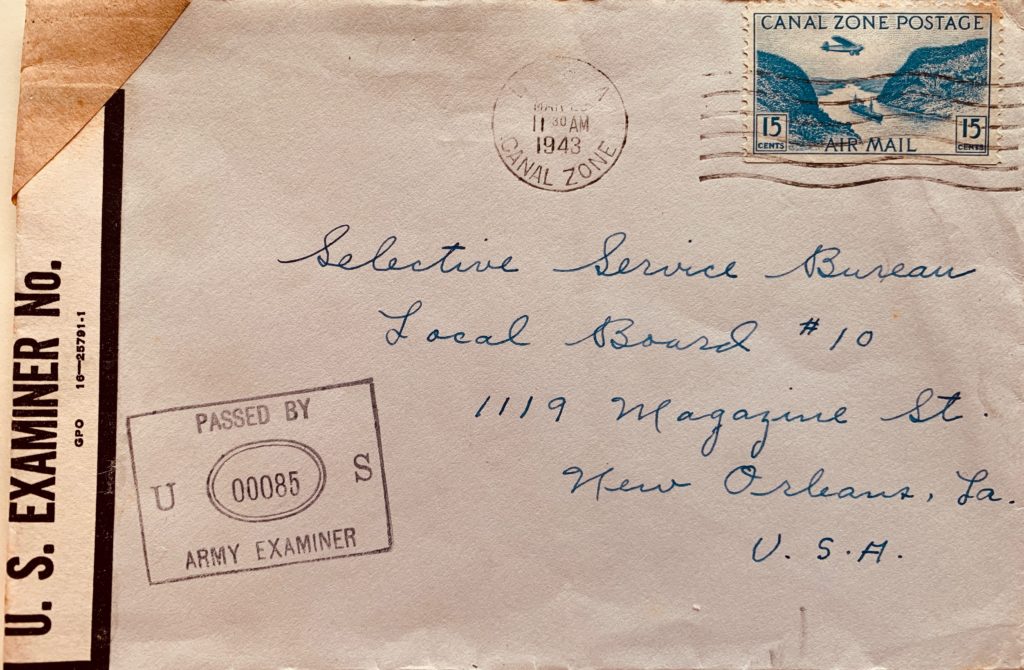 CANAL ZONE POSTAGE
15 CENTS
AIR MAIL
15 CENTS
11 30 AM
1943
CANAL ZONE
Selective Service Bureau
Local Board #10
1119 Magazine St.
New Orleans, La.
U.S.A.
PASSED BY
U 00085 S
ARMY EXAMINER
U. S. EXAMINER No.
GPO 16—25791-1